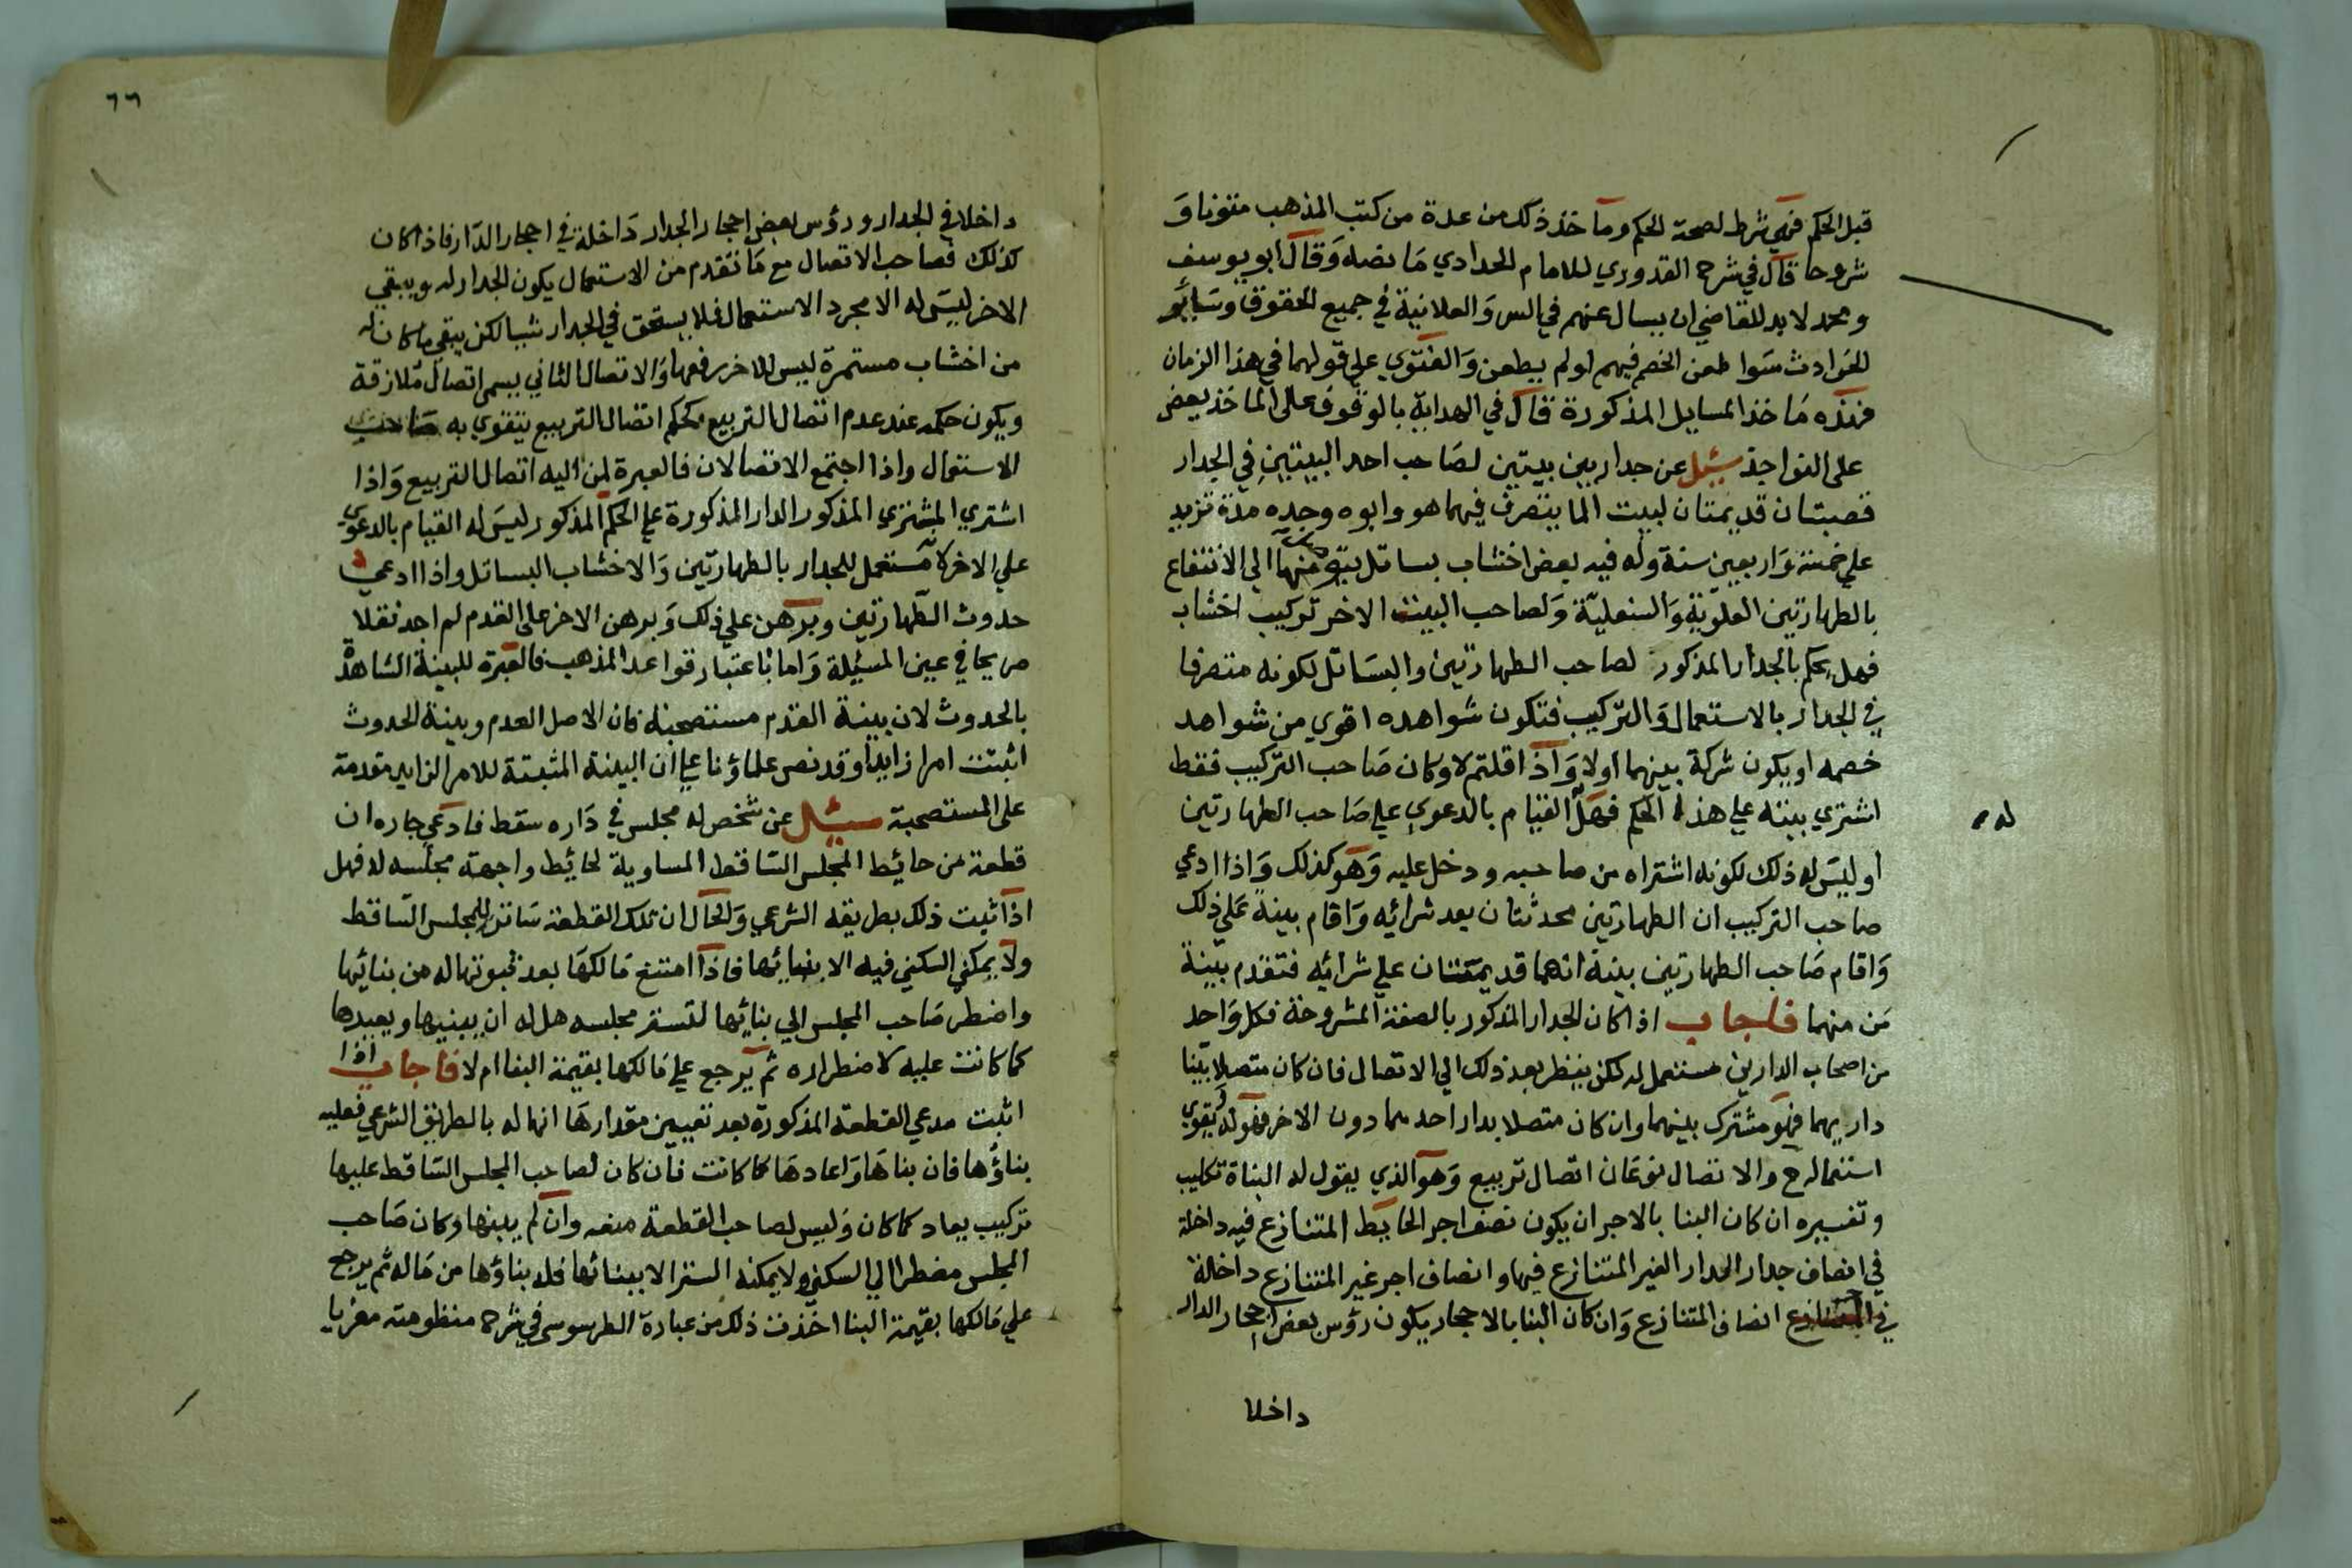 قبل الحكم فهي شرط لصحة الحكم وما خذ ذلك من عدة من كتب المذهب متونا و
شروحا قال في شرح القدوري للامام الحدادي ما نصه وقال ابو يوسف
ومحمد لا بد للقاضي ان يسال عنهم في السر والعلانية في جميع الحقوق وساير
الحوادث سوا طعن الخصم فيهم او لم يطعن والفتوي علي قولهما في هذا الزمان
فهذه ما خذ المسايل المذكورة قال في الهداية بالوقوف على الماخذ يعض
على النواجذ سئل عن جدار بين بيتين لصاحب احد البيتين في الجدار
قصبتان قديمتان لبيت الما يتصرف فيهما هو وابوه وجده مدة تزيد
علي خمسة واربعين سنة وله فيه بعض اخشاب بساتل منها الي الانتفاع
بالطهارتين العلوية والسفلية ولصاحب البيت الاخر تركيب اخشاب
فهل يحكم بالجدار المذكور لصاحب الطهارتين والبساتل لكونه متصرفا
في الجدار بالاستعمال والتركيب فتكون شواهده اقوي من شواهد
خصمه او يكون شركة بينهما اولا واذا قلتم لا وكان صاحب التركيب فقط
اشتري بيته علي هذا الحكم فهل القيام بالدعوي علي صاحب الطهارتين
له م
او ليس له ذلك لكونه اشتراه من صاحبه ودخل عليه وهو كذلك واذا ادعي
صاحب التركيب ان الطهارتين محدثتان بعد شرائه واقام بينة علي ذلك
واقام صاحب الطهارتين بينة انهما قديمتان علي شرائه فتقدم بينة
من منهما فاجاب اذا كان الجدار المذكور بالصفة المشروحة فكل واحد
من اصحاب الدارين مستعمل له لكن ينظر بعد ذلك الي الاتصال فان كان متصلا ببنا
داريهما فهو مشترك بينهما وان كان متصلا بدار احدهما دون الاخر فهو له ويقوي
استعماله ح والاتصال نوعان اتصال تربيع وهو الذي يقول له البناة تكليب
وتفسيره ان كان البنا بالاجر ان يكون نصف اجر الحايط المتنازع فيه داخلة
في انصاف جدار الجدار الغير المتنازع فيها وانصاف اجر غير المتنازع داخلة
في انصاف المتنازع وان كان البنا بالاحجار يكون رؤس بعض احجار الدار
داخلا
٦٦
داخلا في الجدار ورؤس بعض احجار الجدار داخلة في احجار الدار فاذا كان
كذلك فصاحب الاتصال مع ما تقدم من الاستعمال يكون الجدار له ويبقي
الاخر ليس له الا مجرد الاستعمال فلا يستحق في الجدار شيا لكن يبقي ما كان له
من اخشاب مستمرة ليس للاخر رفعها والاتصال الثاني يسمى اتصال ملازقة
ويكون حكمه عند عدم اتصال التربيع كحكم اتصال التربيع يتقوي به صاحب
الاستعمال واذا اجتمع الاتصالان فالعبرة لمن اليه اتصال التربيع واذا
اشتري المشتري المذكور الدار المذكورة علي الحكم المذكور ليس له القيام بالدعوي
علي الاخر لانه مستعمل للجدار بالطهارتين والاخشاب البساتل واذا ادعي
حدوث الطهارتين وبرهن علي ذلك وبرهن الاخر على القدم لم اجد نقلا
صريحا في عين المسئلة واما باعتبار قواعد المذهب فالعبرة للبينة الشاهدة
بالحدوث لان بينة القدم مستصحبة كان الاصل العدم وبينة الحدوث
اثبتت امرا زايدا وقد نص علماؤنا علي ان البينة المثبتة للامر الزايد مقدمة
على المستصحبة سئل عن شخص له مجلس في داره سقط فادعي جاره ان
قطعة من حائيط المجلس الساقط المساوية لحائيط واجهة مجلسه له فهل
اذا ثبت ذلك بطريقه الشرعي والحال ان تلك القطعة ساتر للمجلس الساقط
ولا يمكن السكني فيه الا ببنائها فاذا امتنع مالكها بعد ثبوتها له من بنائها
واضطر صاحب المجلس الي بنائها لتستر مجلسه هل له ان يبنيها ويعيدها
كما كانت عليه لاضطراره ثم يرجع علي مالكها بقيمة البنا ام لا فاجاب اذا
اثبت مدعي القطعة المذكورة بعد تعيين مقدارها انها له بالطريق الشرعي فعليه
بناؤها فان بناها واعادها كما كانت فان كان لصاحب المجلس الساقط عليها
تركيب يعاد كما كان وليس لصاحب القطعة منعه وان لم يبنها وكان صاحب
المجلس مضطرا الي السكني ولا يمكنه الستر الا ببنائها فله بناؤها من ماله ثم يرجع
علي مالكها بقيمة البنا اخذت ذلك من عبارة الطرسوسي في شرح منظومته معزيا